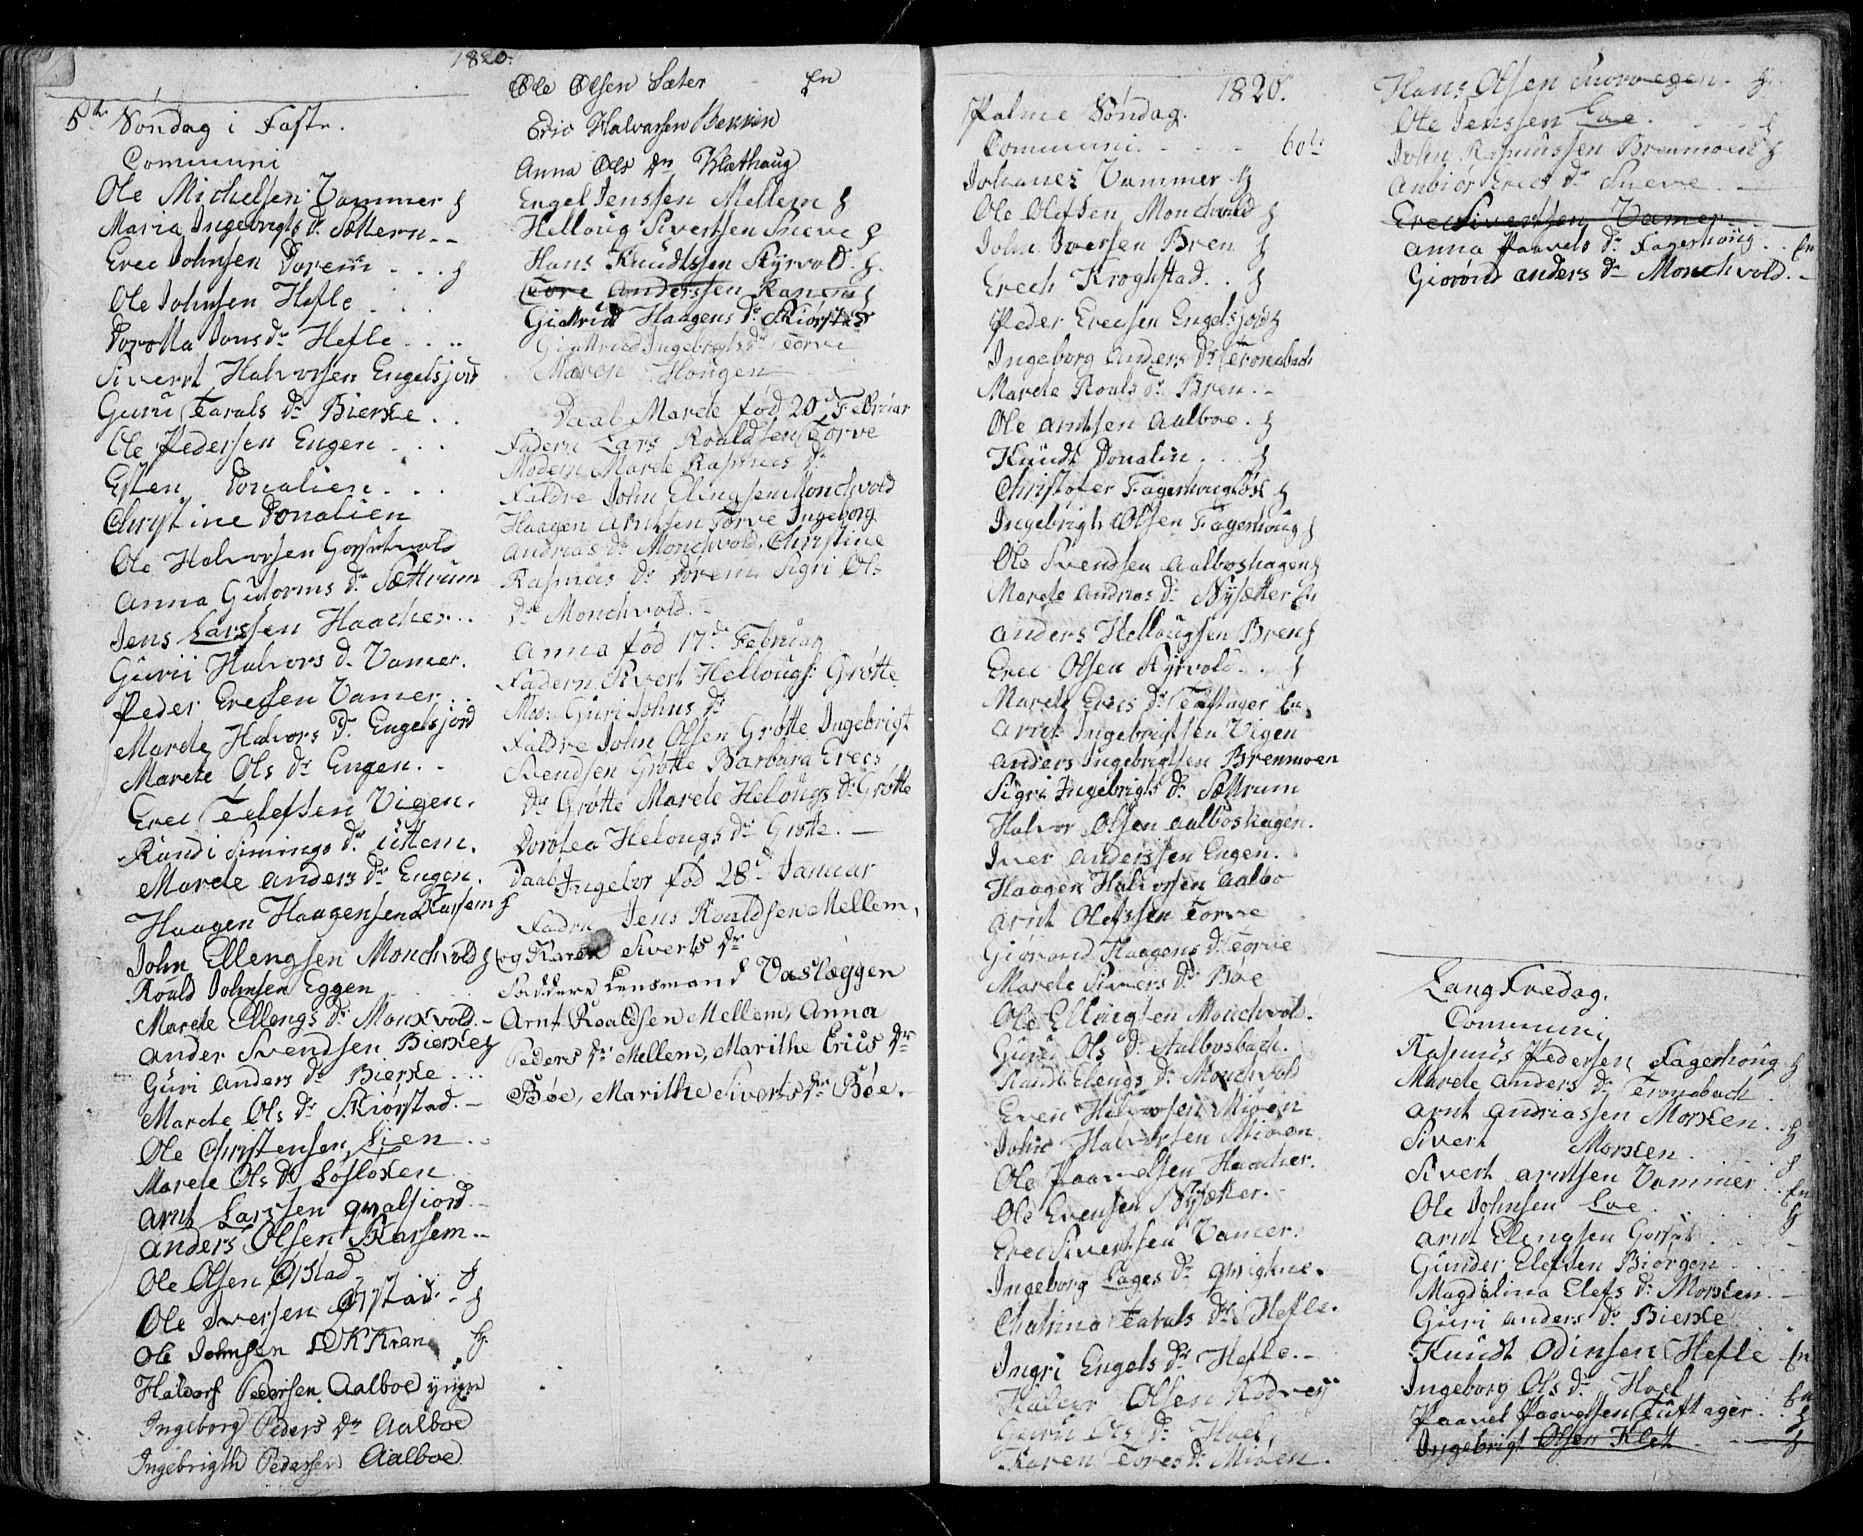 1820.
5te Søndag i Faste.
Communi
Ole Michelsen Vammer
Maria Ingebrigts Dr Sættern
Erec Johnsen Dorem
Ole Johnsen Hefle
Dorotta Jons Dr Hefle
Sivert Halvorsen Engelsjord
Guru Tarals Dr Bierke
Ole Pedersen Engen
Esten Donalien
Christine Donalien
Ole Halvorsen
Anna Gutorms Dr Sættrum
Jens Larssen Haacher
Gurii Halvors Dr Vamer.
Peder Erecsen Vamer
Marete Halvors Dr Engelsjord
Marete Ols Dr Engen.
Erec Telefsen Vigen.
Randi Simings Dr uttem.
Marete Anders Dr Engen.
Haagen Haagensen Karsem
John Ellengsen Monchvold
Roald Johnsen Eggen
Marete Ellengs Dr Monkvold.
Ander Svendsen Bierke
Guri Anders Dr Bierke
Marete Ols Dr Skiørstad.
Ole Christensen Lien
Marete Ols Dr Løsloken
Arnt Larssen qvalsiord
Anders Olsen Karsem
Ole Olsen Ørstad
Ole Iversen Ørstad
Ole Johnsen LØKKran
Haldors Pedersen Aalboe yngre
Ingeborg Peders Dr Aalboe
Ingebrigth Pedersen Aalboe
Ole Olsen Sæter En
Eric Halvorsen Bekken
Anna Ols Dr Klæthaug
Engel Jenssen Mellem
Helloug Sivertsen Sneve
Hans Knudtssen Kyrvold
Tore Anderssen Ranem
Giertrud Haagens Dr Skiørstad
Giertrued Ingebrigts Dr Torve
Maren Hougen
Daab Marete fød 20d Februar
Fadern Lars Roaldsen Torve
Modern Marete Rasmus Dr
Faldre John Elingsen Monchvold
Haagen Arntsen Torve Ingeborg
Andrias Dr Monchvold, Christine
Rasmus Dr Dorem Sigri Ols
Dr Monchvold.
Anna fød 17d Februar
Fadern Sivert Hellougs: Grøtte
Mod: Guri Johns Dr
Faldre John Olsen Grøtte Ingebrigt
Svendsen Grøtte Barbara Erecs
Dr Grøtte Marete Helougs Dr Grøtte
Dorotea Helougs Dr Grøtte.
Daab Ingebor fød 28d Januar
Fadrn Jens Roaldsen Mellem,
og Karen Siverts Dr
Faddere Lensmand Vaslæggen
Arnt Roaldsen Mellem, Anna
Peders Dr Mellem, Marithe Erics Dr
Bøe, Marithe Siverts Dr Bøe.
1820.
Palme Søndag.
Communi. 60ti
Johanes Vammer
Ole Olefsen Monchvold
John Iversen Bren
Erech Kroghstad
Peder Erecsen Engelsjord
Ingeborg Anders Dr Tronsbach
Marete Roals Dr Bren.
Ole Arntsen Aalboe.
Knudt Donalin
Christofer Fagerhoug
Ingebrigt Olsen Fagerhoug
Ole Svendsen Aalboshagen
Marete Andrias Dr Nysætter En
Anders Hellougsen Bren
Erec Olsen Kyrvold
Marete Erecs Dr Tuftager En
Arnt Ingebrigtsen Vigen
Anders Ingebrigtsen Brenmoen
Sigri Ingebrigts Dr Sættrum
Halvor Olsen Aalboshagen.
Iver Anderssen Engen.
Haagen Halvorsen Aalbo
Arnt Olefssen Torve
Giørond Haagens Dr Torve
Marete Sivers Dr Bøe
Ole Ellingsen Monchvold.
Guru Ols Dr Aalbosbach.
Randi Elengs Dr Monchvold
Even Halvorsen Mioen
John Halvorsen Mioen
Ole Paavelsen Haacher.
Ole Evensen Nysætter.
Erec Sivertsen Vamer.
Ingeborg Lages Dr qvigkne.
Chatrina Tarals Dr Hefle.
Ingri Engels Dr Hefle.
Halvor Olsen Rødvey
Guru Ols Dr Hoel
Karen Tores Dr Mioen.
Hans Olsen
Ole Jenssen Loe
John Rasmussen Brenmoen
Anbiør Erecs Dr Sneve
Erec Sivertsen Vamer
Anna Paavels Dr Fagerhoug En
Giørond Anders Dr Monchvold.
Lang Fredag.
Communi
Rasmus Pedersen Fagerhoug
Marete Anders Dr Tronsbach
Arnt Andriassen Morken
Sivert Morken
Sivert Arntsen Vammer
Ole Johnsen Loe En
Arnt Elengsen
Gunder Elefsen Biørgen
Magdalina Elefs Dr Morken
Guri Anders Dr Bierke
Knudt Odinsen Hefle En
Ingeborg Ols Dr Hoel
Paavel Paavelsen Tuftager En
Ingebrigt Olsen Klet